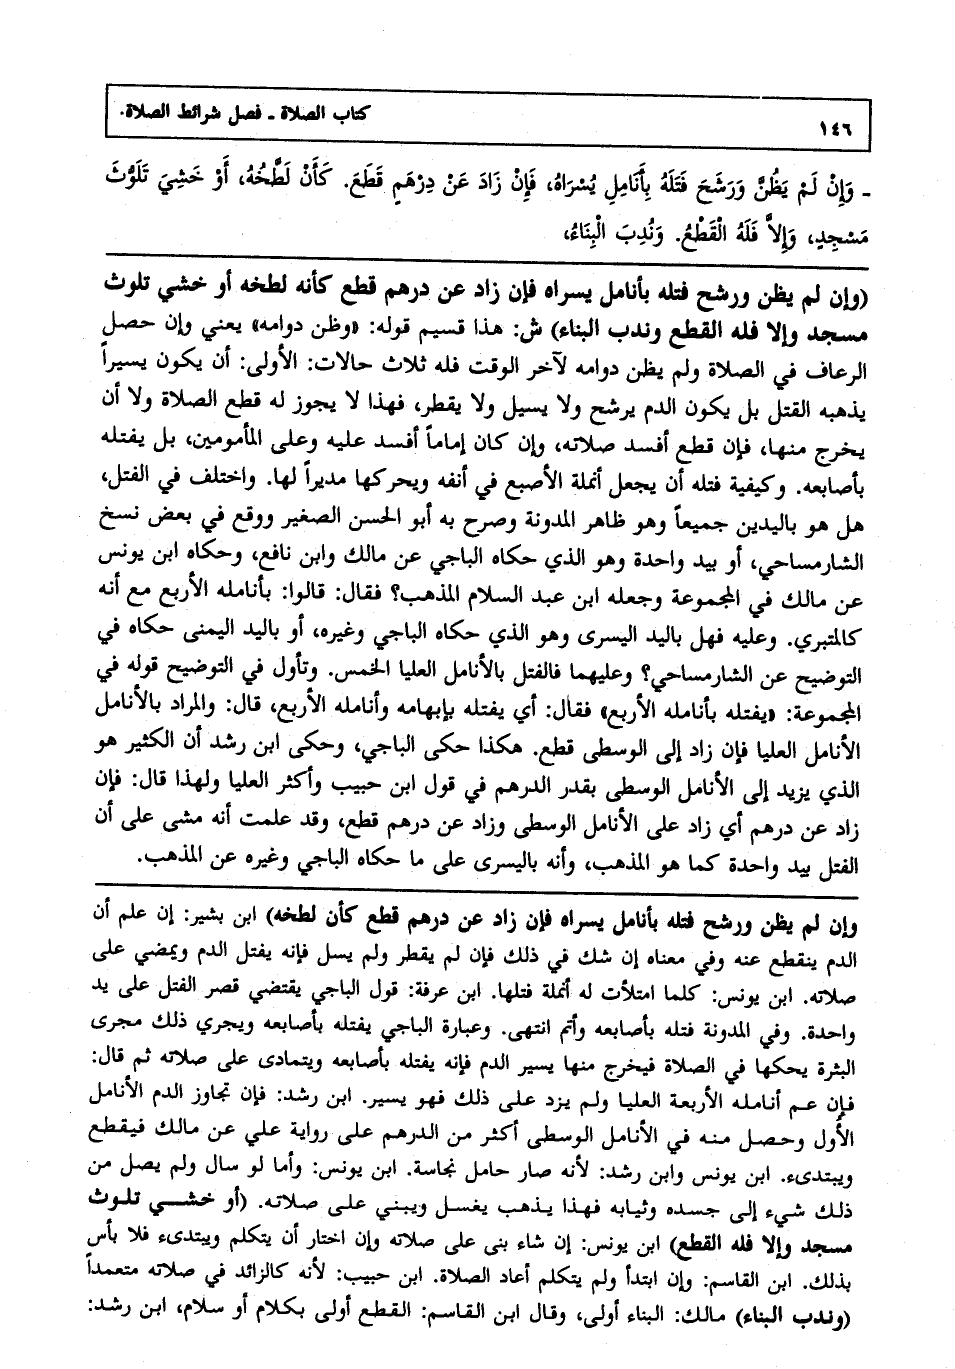 ١٤٦ كتاب الصلاة ـ فصل شرائط الصلاة.
ـ وَإِنْ لَمْ يَظُنَّ وَرَشَحَ فَتَلَهُ بِأَنَامِلِ يُسْرَاهُ، فَإِنْ زَادَ عَنْ دِرْهَمٍ قَطَعَ. كَأَنْ لَطَّخَهُ، أَوْ خَشِيَ تَلَوُّثَ
مَسْجِدٍ، وَإِلاَّ فَلَهُ الْقَطْعُ. وَنُدِبَ الْبِنَاءُ،
(وإن لم يظن ورشح فتله بأنامل يسراه فإن زاد عن درهم قطع كأنه لطخه أو خشي تلوث
مسجد وإلا فله القطع وندب البناء) ش: هذا قسيم قوله: «وظن دوامه» يعني وإن حصل
الرعاف في الصلاة ولم يظن دوامه لآخر الوقت فله ثلاث حالات: الأولى: أن يكون يسيراً
يذهبه الفتل بل يكون الدم يرشح ولا يسيل ولا يقطر، فهذا لا يجوز له قطع الصلاة ولا أن
يخرج منها، فإن قطع أفسد صلاته، وإن كان إماماً أفسد عليه وعلى المأمومين، بل يفتله
بأصابعه. وكيفية فتله أن يجعل أنملة الأصبع في أنفه ويحركها مديراً لها. واختلف في الفتل،
هل هو باليدين جميعاً وهو ظاهر المدونة وصرح به أبو الحسن الصغير ووقع في بعض نسخ
الشارمساحي، أو بيد واحدة وهو الذي حكاه الباجي عن مالك وابن نافع، وحكاه ابن يونس
عن مالك في المجموعة وجعله ابن عبد السلام المذهب؟ فقال: قالوا: بأنامله الأربع مع أنه
كالمتبري. وعليه فهل باليد اليسرى وهو الذي حكاه الباجي وغيره، أو باليد اليمنى حكاه في
التوضيح عن الشارمساحي؟ وعليهما فالفتل بالأنامل العليا الخمس. وتأول في التوضيح قوله في
المجموعة: «يفتله بأنامله الأربع» فقال: أي يفتله بإبهامه وأنامله الأربع، قال: والمراد بالأنامل
الأنامل العليا فإن زاد إلى الوسطى قطع. هكذا حكى الباجي، وحكى ابن رشد أن الكثير هو
الذي يزيد إلى الأنامل الوسطى بقدر الدرهم في قول ابن حبيب وأكثر العليا ولهذا قال: فإن
زاد عن درهم أي زاد على الأنامل الوسطى وزاد عن درهم قطع، وقد علمت أنه مشى على أن
الفتل بيد واحدة كما هو المذهب، وأنه باليسرى على ما حكاه الباجي وغيره عن المذهب.
وإن لم يظن ورشح فتله بأنامل يسراه فإن زاد عن درهم قطع كأن لطخه) ابن بشير: إن علم أن
الدم ينقطع عنه وفي معناه إن شك في ذلك فإن لم يقطر ولم يسل فإنه يفتل الدم ويمضي على
صلاته. ابن يونس: كلما امتلأت له أنملة فتلها. ابن عرفة: قول الباجي يقتضي قصر الفتل على يد
واحدة. وفي المدونة فتله بأصابعه وأتم انتهى. وعبارة الباجي يفتله بأصابعه ويجري ذلك مجرى
البثرة يحكها في الصلاة فيخرج منها يسير الدم فإنه يفتله بأصابعه ويتمادى على صلاته ثم قال:
فإن عم أنامله الأربعة العليا ولم يزد على ذلك فهو يسير. ابن رشد: فإن تجاوز الدم الأنامل
الأول وحصل منه في الأنامل الوسطى أكثر من الدرهم على رواية علي عن مالك فيقطع
ويبتدىء. ابن يونس وابن رشد: لأنه صار حامل نجاسة. ابن يونس: وأما لو سال ولم يصل من
ذلك شيء إلى جسده وثيابه فهذا يذهب يغسل ويبني على صلاته. (أو خشي تلوث
مسجد وإلا فله القطع) ابن يونس: إن شاء بنى على صلاته وإن اختار أن يتكلم ويبتدىء فلا بأس
بذلك. ابن القاسم: وإن ابتدأ ولم يتكلم أعاد الصلاة. ابن حبيب: لأنه كالزائد في صلاته متعمداً
(وندب البناء) مالك: البناء أولى، وقال ابن القاسم: القطع أولى بكلام أو سلام، ابن رشد: